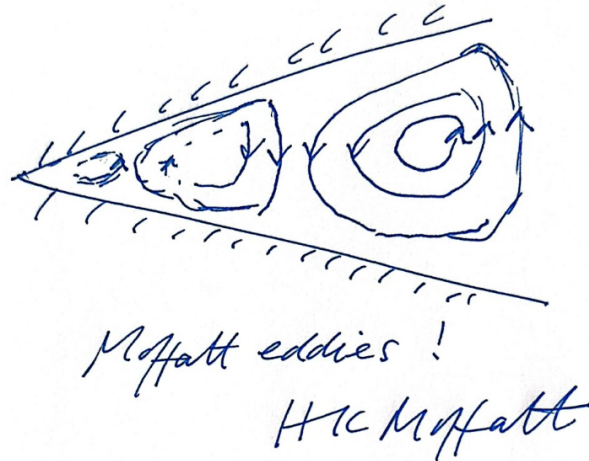 Moffatt eddies !
HK Moffatt